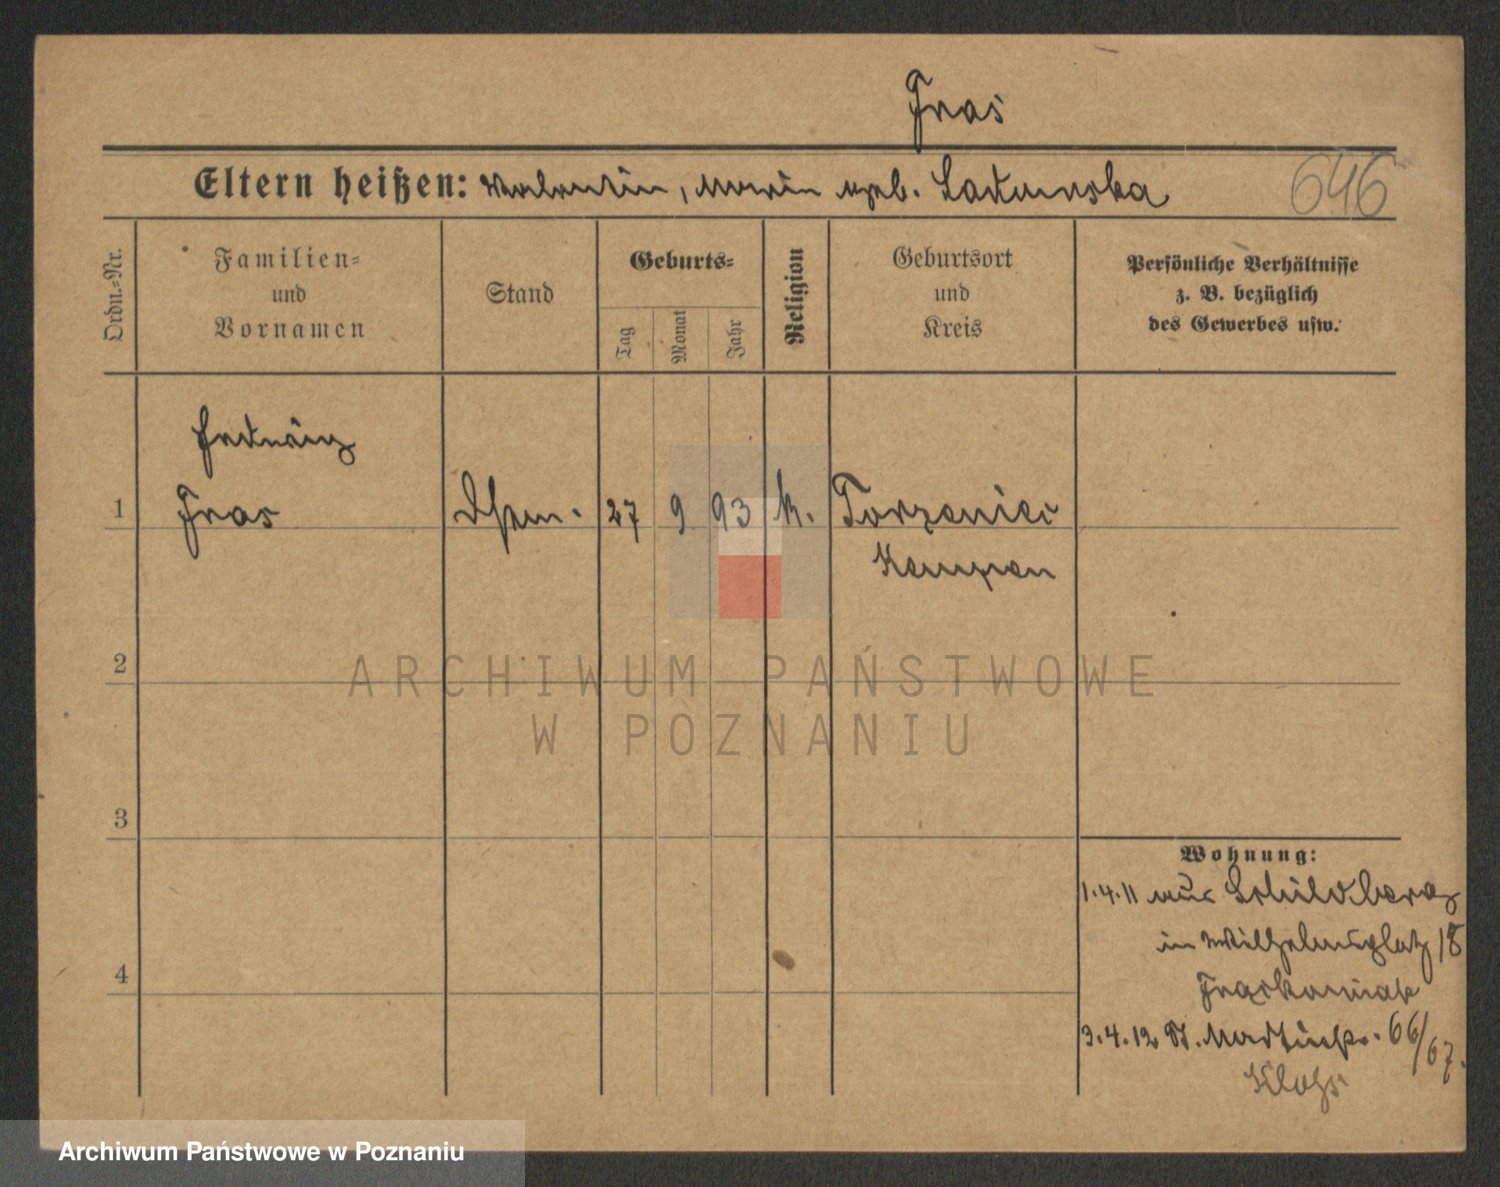 Fras
Eltern heißen: Valentin, Marie geb. Ladumska
646
Ordn.-Nr.
Familien-
und
Vornamen
Stand
Geburts-
Tag
Monat
Jahr
Religion
Geburtsort
und
Kreis
Persönliche Verhältnisse
z. B. bezüglich
des Gewerbes usw.
Hedwig
1 Fras 27 9 93 k. Torzeniec
Kempen
2
3
4
Wohnung:
1.4.11 aus Schildberg
in Wilhelmsplatz 18
3.4.12 St. Martinstr. 66/67.
ARCHIWUM PAŃSTWOWE
W POZNANIU
Archiwum Państwowe w Poznaniu